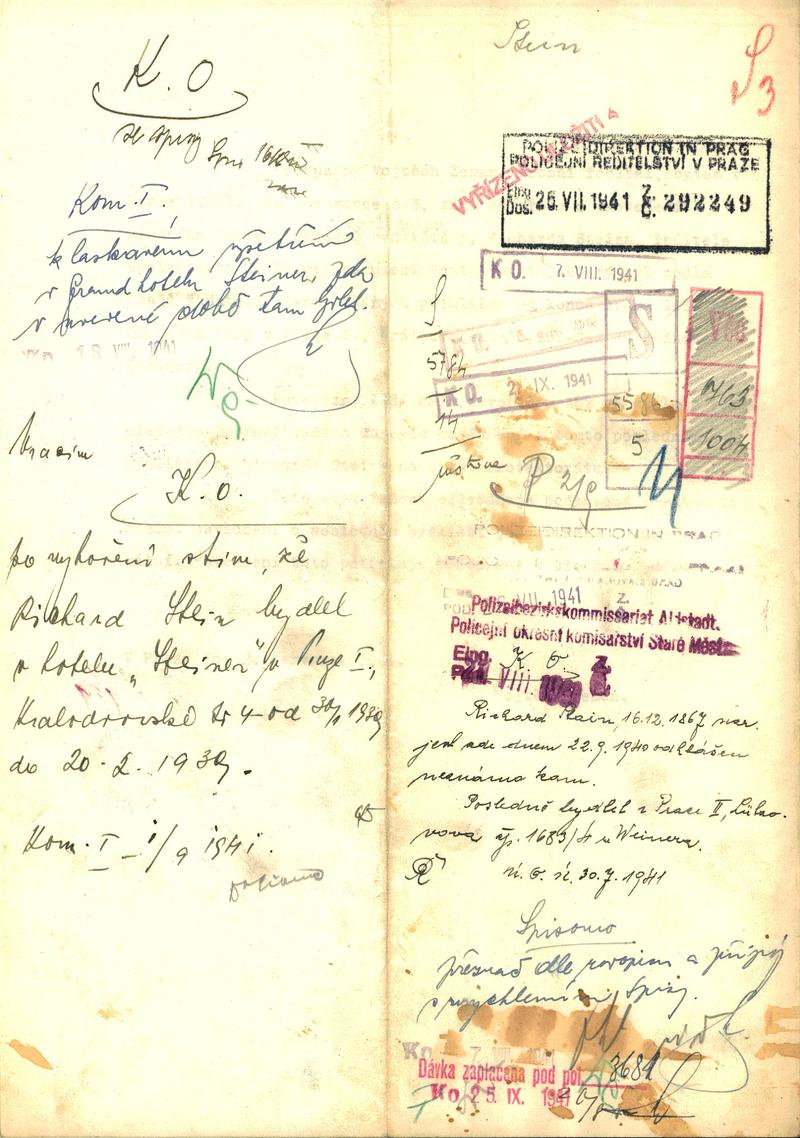 K. O
se spisy
Kom. I.
k laskavému vyšetření
v Grand hotelu Steiner, zda
v uvedené době tam bydlel.
KO 18 VIII 1941
Vracím
K. o.
po vyšetření s tím, že
Richard Stein bydlel
v hotelu „Steiner" v Praze I.,
Královdvorské tř 4 od 30/1 1939
do 20. 2. 1939.
Kom. I – 1/9 1941.
Stein
S
3
POLIZEIDIREKTION IN PRAG
POLICEJNÍ ŘEDITELSTVÍ V PRAZE
Eing.
Doš. 26. VII. 1941 Z. Č. 292249
VYŘÍZENO
K O. 7. VIII. 1941
S
5784
14
K O. 2. IX. 1941
S
5586
5
Vše
763
1004
P 2/9
POLIZEIDIREKTION IN PRAG
VII. 1941
Polizeibezirkskommissariat Altstadt.
Policejní okresní komisařství Staré Město
Eing. K. O. Z.
VIII. 1941 Č.
Richard Stein, 16.12.1867 nar.
jest zde dnem 22.9.1940 odhlášen
neznámo kam.
Posledně bydlel v Praze II, Lützo-
vova čp. 1683/4 u Weinera.
30.7.1941
Spisovna
přeznač dle rozpisu a připoj
s urychlením spisy.
KO 7
Dávka zaplacena pod pol 3684
KO 25. IX. 1941